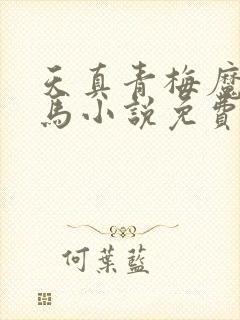 天真青梅魔
馬小說免費
何葉藍